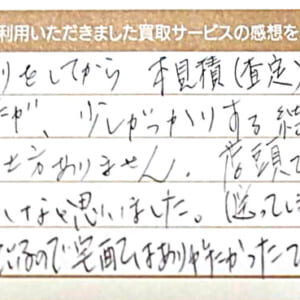 利用いただきました買取サービスの感想を
りをしてから 本見積(査定)
だが、少しがっかりする結
仕方ありません。店頭で
いなと思いました。(送ってし
いるので宅配はありがたかったで